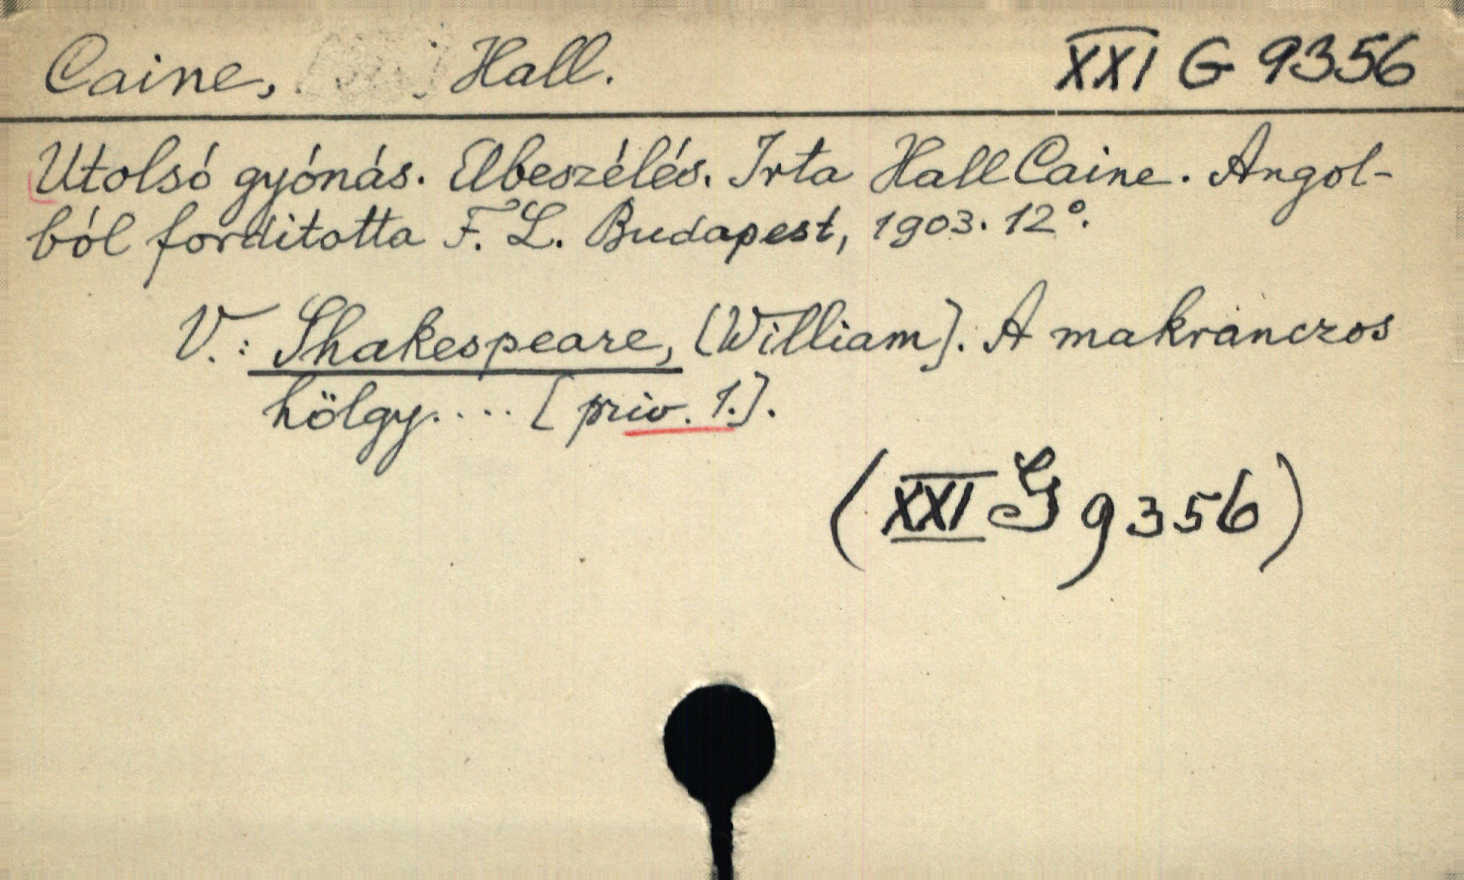 Caine, Hall. XXI G 9356
Utolsó gyónás. Elbeszélés. Irta Hall Caine. Angol-
ból forditotta F. L. Budapest, 1903. 12°.
V.: Shakespeare, [William]. A makranczos
hölgy.... [priv. 1.].
(XXI G 9356)